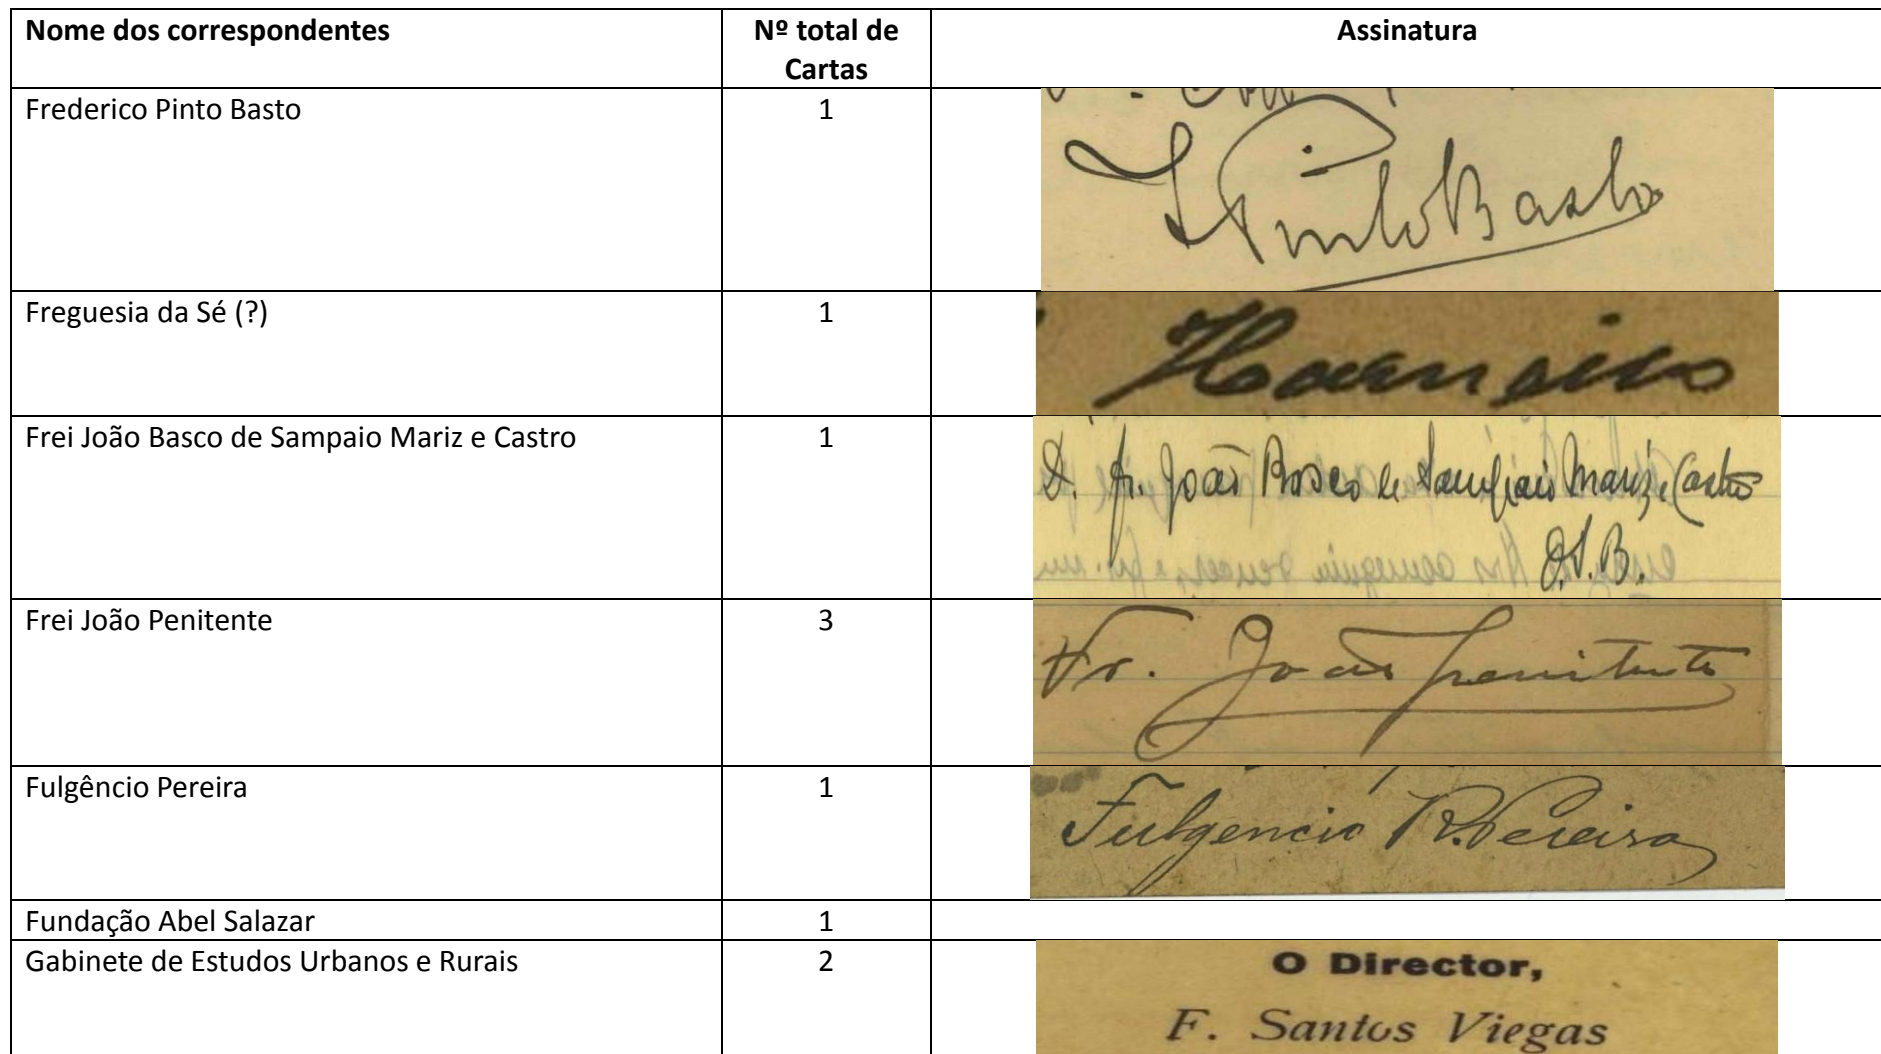 Nome dos correspondentes
Nº total de
Cartas
Assinatura
Frederico Pinto Basto
1
F Pinto Basto
Freguesia da Sé (?)
1
Frei João Basco de Sampaio Mariz e Castro
1
D. fr. João Bosco de Sampaio Mariz e Castro
O.S.B.
Frei João Penitente
3
Fr. João Penitente
Fulgêncio Pereira
1
Fulgencio R. Pereira
Fundação Abel Salazar
1
Gabinete de Estudos Urbanos e Rurais
2
O Director,
F. Santos Viegas